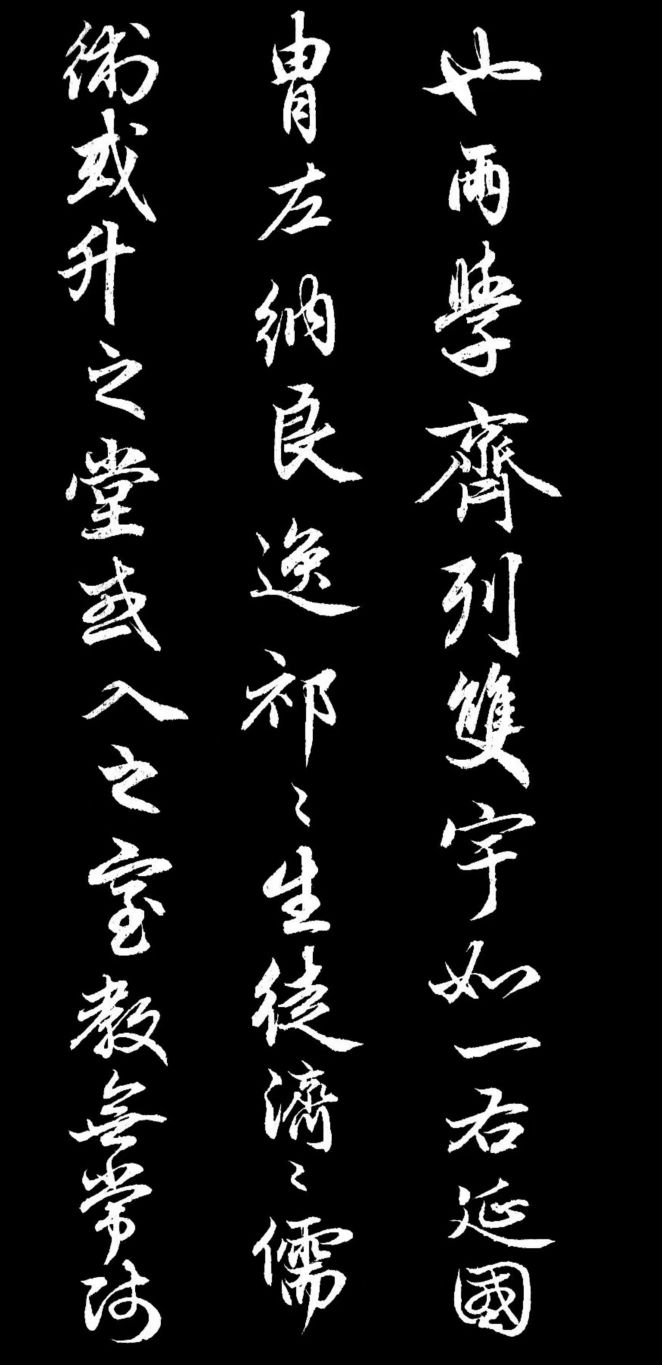 也兩學齊列雙宇如一右延國
胄左納良逸祁〻生徒濟〻儒
術或升之堂或入之室教無常師